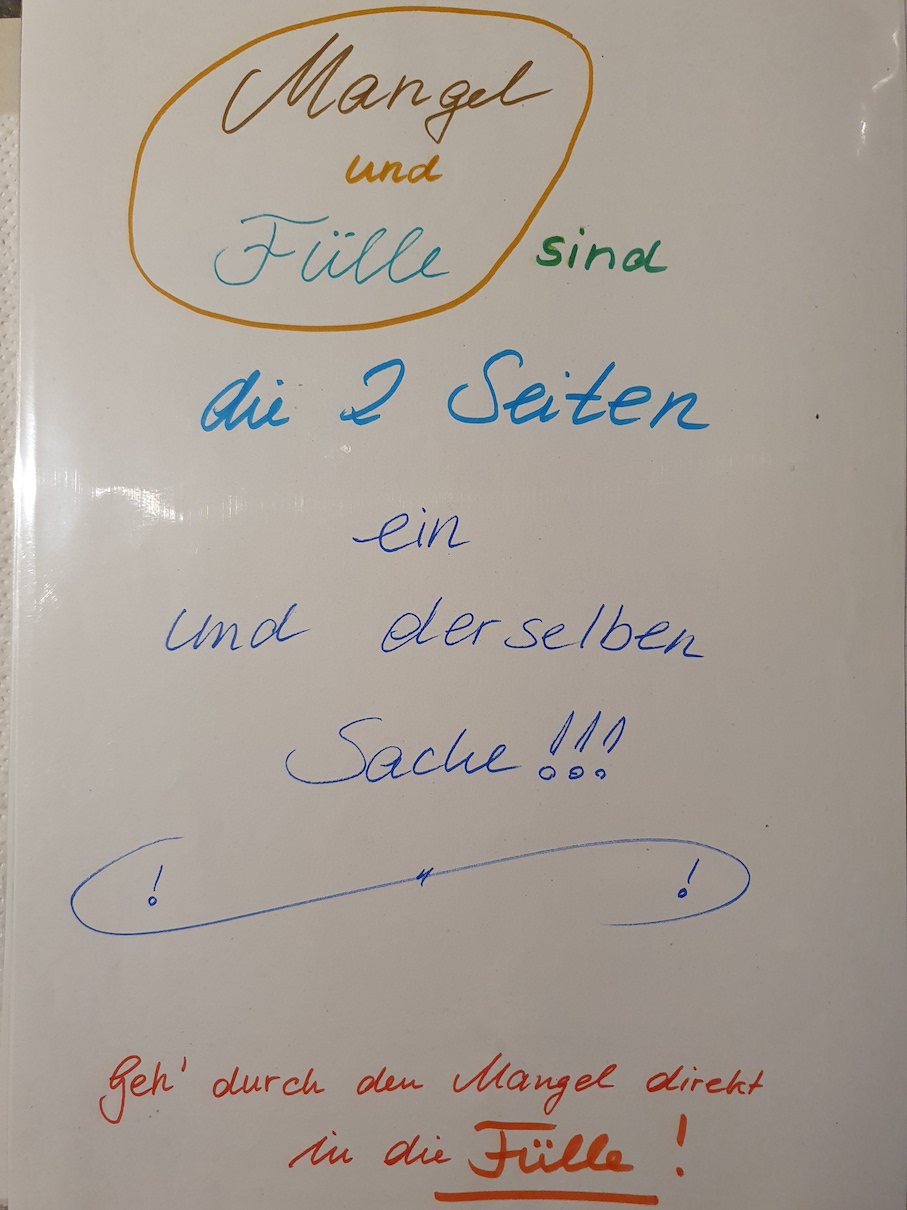 Mangel
und
Fülle sind
die 2 Seiten
ein
und derselben
Sache!!!
! !
Geh' durch den Mangel direkt
in die Fülle!